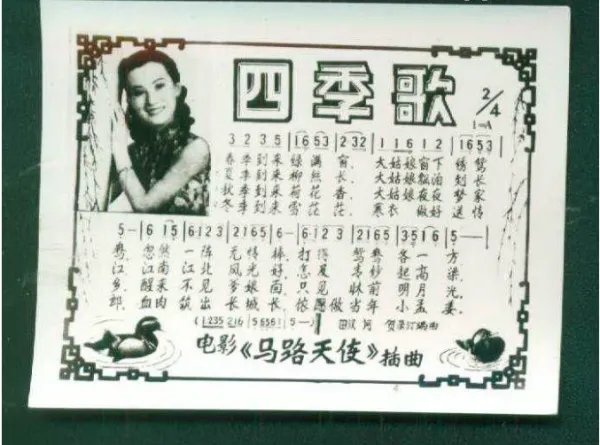 四季歌
2/4
3 2 3 5 | 1653 | 2·32 | 1 1 6 1 2 | 1653 |
春季到来绿满窗，大姑娘窗下绣鸳
夏季到来柳丝长，大姑娘飘泊到长
秋季到来荷花香，大姑娘夜夜梦家
冬季到来雪茫茫，寒衣做好送情
5 — | 6 i5 | 6·1 2 3 | 2165 | 6·1 2 3 | 2165 | 3516 | 5 — |
鸯，忽然一阵无情棒，打得鸳鸯各一方
江，江南江北风光好，怎及青纱起高粱
乡，醒来不见爹娘面，只见床前明月光
郎，血肉筑出长城长，侬愿做当年小孟姜
田汉词 贺绿汀编曲
电影《马路天使》插曲